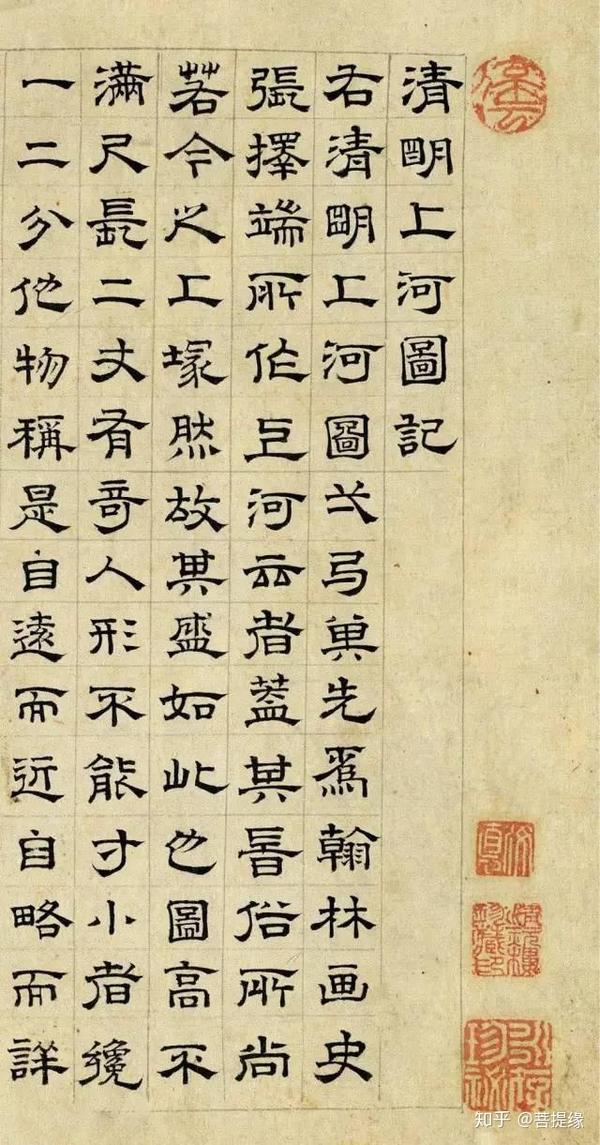 清明上河圖記
右清明上河圖弌弓先爲翰林画史
張擇端所作上河云者蓋其旹俗所尚
若今之上塚然故其盛如此也圖高不
滿尺長二丈有奇人形不能寸小者纔
一二分他物稱是自遠而近自略而詳
知乎 @菩提缘